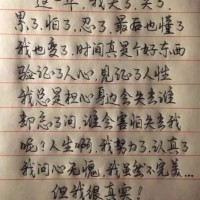 这一年，我哭了，笑了，
累了，怕了，忍了，最后也懂了
我也变了，时间真是个好东西
验证了人心，见证了人性
我总是担心身边会失去谁
却忘了问，谁会害怕失去我
呢？人生啊，我努力了，认真了
我问心无愧，我虽然不完美…
但我很真实！